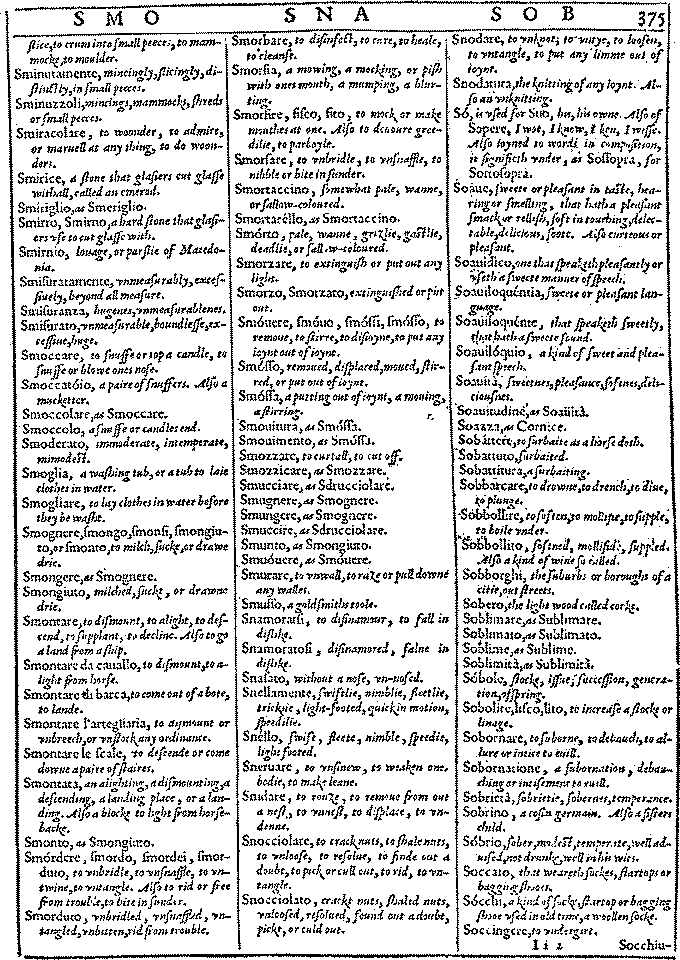 S M O
S N A
S O B
375
slice, to crum into small peeces, to mam-
mocke, to moulder.
Sminutamente, mincingly, slicingly, di-
stinctly, in small peeces.
Sminuzzoli, mincings, mammocks, shreds
or small peeces.
Smiracolare, to wonder, to admire,
or maruell at any thing, to do woon-
ders.
Smirice, a stone that glasiers cut glasse
withall, called an emerod.
Smiriglio, as Smeriglio.
Smirro, Smirno, a hard stone that glasi-
ers vse to cut glasse with.
Smirnio, louage, or parslie of Macedo-
nia.
Smisuratamente, vnmeasurably, exces-
siuely, beyond all measure.
Smisuranza, hugenes, vnmeasurablenes.
Smisurato, vnmeasurable, boundlesse, ex-
cessiue, huge.
Smoccare, to snuffe or top a candle, to
snuffe or blowe ones nose.
Smoccatóio, a paire of snuffers. Also a
mucketter.
Smoccolare, as Smoccare.
Smoccolo, a snuffe or candles end.
Smoderato, immoderate, intemperate,
immodest.
Smoglia, a washing tub, or a tub to laie
clothes in water.
Smogliare, to lay clothes in water before
they be washt.
Smognere, smongo, smonsi, smongiu-
to, or smonto, to milch, sucke, or drawe
drie.
Smongere, as Smognere.
Smongiuto, milched, suckt, or drawne
drie.
Smontare, to dismount, to alight, to des-
cend, to supplant, to decline. Also to go
a land from a ship.
Smontare da cauallo, to dismount, to a-
light from horse.
Smontare di barca, to come out of a bote,
to lande.
Smontare l'arteglíaria, to dismount or
vnbreech, or vnstock any ordinance.
Smontare le scale, to descende or come
downe a paire of staires.
Smontata, an alighting, a dismounting, a
descending, a landing place, or a lan-
ding. Also a blocke to light from horse-
backe.
Smonto, as Smongiuto.
Smórdere, smordo, smordei, smor-
duto, to vnbridle, to vnsnaffle, to vn-
twine, to vntangle. Also to rid or free
from trouble, to bite in sunder.
Smorduto, vnbridled, vnsnaffled, vn-
tangled, vnbitten, rid from trouble.
Smorbare, to disinfect, to cure, to heale,
to cleanse.
Smorfia, a mowing, a mocking, or pish
with ones mouth, a mumping, a blur-
ting.
Smorfire, fisco, fito, to mock or make
mouthes at one. Also to deuoure gree-
dilie, to parboyle.
Smorsare, to vnbridle, to vnsnaffle, to
nibble or bite in sunder.
Smortaccino, somewhat pale, wanne,
or sallow-coloured.
Smortarèllo, as Smortaccino.
Smórto, pale, wanne, grizlie, gastlie,
deadlie, or sallow-coloured.
Smorzare, to extinguish or put out any
light.
Smorzo, Smorzato, extinguished or put
out.
Smóuere, smóuo, smóssi, smósso, to
remoue, to stirre, to disioyne, to put any
ioynt out of ioynt.
Smósso, remoued, displaced, moued, stir-
red, or put out of ioynt.
Smóssa, a putting out of ioynt, a mouing,
a stirring.
Smouitura, as Smóssa.
Smouimento, as Smóssa.
Smozzare, to curtall, to cut off.
Smozzicare, as Smozzare.
Smucciare, as Sdrucciolare.
Smugnere, as Smognere.
Smungere, as Smognere.
Smuccire, as Sdrucciolare.
Smunto, as Smongiuto.
Smuóuere, as Smóuere.
Smurare, to vnwall, to raze or pull downe
any walles.
Smusso, a goldsmiths toole.
Snamorarsi, to disinamour, to fall in
dislike.
Snamoratosi, disinamored, falne in
dislike.
Snasato, without a nose, vn-nosed.
Snellamente, swiftlie, nimblie, fleetlie,
trickie, light-footed, quick in motion,
speedilie.
Snéllo, swift, fleete, nimble, speedie,
light footed.
Sneruare, to vnsinew, to weaken ones
bodie, to make leane.
Snidare, to rouze, to remoue from out
a nest, to vnnest, to displace, to vn-
denne.
Snocciolare, to crack nuts, to shale nuts,
to vnloose, to resolue, to finde out a
doubt, to pick or cull out, to rid, to vn-
tangle.
Snocciolato, crackt nuts, shaled nuts,
vnloosed, resolued, found out a doubt,
pickt, or culd out.
Snodare, to vnknot, to vntye, to loosen,
to vntangle, to put any limme out of
ioynt.
Snodatura, the knitting of any ioynt. Al-
so an vnknitting.
Só, is vsed for Suo, his, his owne. Also of
Sapere, I wot, I know, I ken, I wisse.
Also ioyned to words in composition,
it signifieth vnder, as Sossopra, for
Sottosopra.
Soáue, sweete or pleasant in taste, hea-
ring or smelling, that hath a pleasant
smack or rellish, soft in touching, delec-
table, delicious, soote. Also curteous or
pleasant.
Soauidico, one that speaketh pleasantly or
vseth a sweete manner of speech.
Soauiloquéntia, sweete or pleasant lan-
guage.
Soauiloquénte, that speaketh sweetly,
that hath a sweete sound.
Soauilóquio, a kind of sweet and plea-
sant speech.
Soauità, sweetnes, pleasance, softnes, deli-
ciousnes.
Soauitudine, as Soauità.
Soazza, as Cornice.
Sobáttere, to surbaite as a horse doth.
Sobattuto, surbaited.
Sobattitura, a surbaiting.
Sobbarcare, to drowne, to drench, to diue,
to plunge.
Sobbollire, to soften, to mollifie, to supple,
to boile vnder.
Sobbollito, softned, mollifide, suppled.
Also a kind of wine so called.
Sobborghi, the suburbs or boroughs of a
citie, out streets.
Sobero, the light wood called corke.
Soblimare, as Sublimare.
Soblimato, as Sublimato.
Soblime, as Sublime.
Soblimità, as Sublimità.
Sóbole, stocke, issue, succession, genera-
tion, ofspring.
Sobolire, lisco, lito, to increase a stocke or
linage.
Sobornare, to suborne, to debauch, to al-
lure or intice to euill.
Sobornatione, a subornation, debau-
ching or inticement to euill.
Sobrietà, sobrietie, sobernes, temperance.
Sobrino, a cosin germain. Also a sisters
child.
Sóbrio, sober, modest, temperate, well ad-
uised, not drunke, well in his wits.
Soccato, that weareth suckes, startops or
bagging shooes.
Sócchi, a kind of sucks, startop or bagging
shooe vsed in old time, a woollen socke.
Soccingere, to vndergirt.
I i 2
Socchiu-